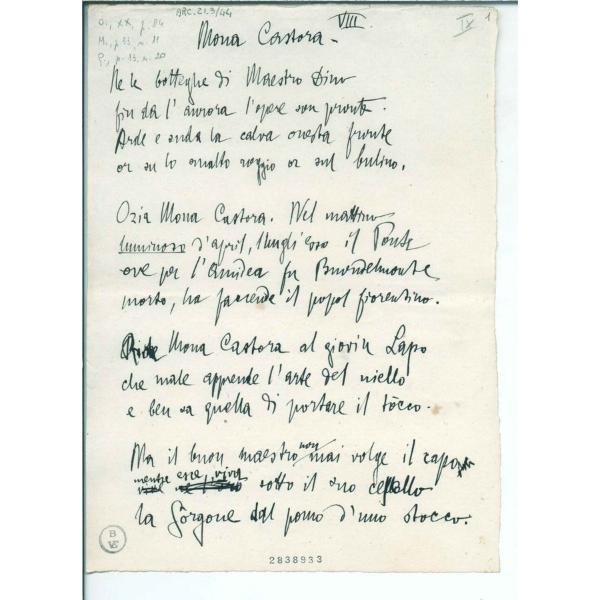 ARC.21.3/44
VIII.
IX
1
Mona Castora –
Ne le botteghe di Maestro Dino
fin da l'aurora l'opere son pronte.
Arde e suda la calva onesta fronte
or su lo smalto roggio or sul bulino.
Ozia Mona Castora. Nel mattino
luminoso d'april, lungh'esso il Ponte
ove per l'Amidea fu Buondelmonte
morto, ha faccende il popol fiorentino.
Ride Mona Castora al giovin Lapo
che male apprende l'arte del niello
e ben sa quella di portare il tòcco.
Ma il buon maestro non mai volge il capo
mentre esce, viva
sotto il suo cesello
la Gòrgone dal pomo d'uno stocco.
BVE
2838933